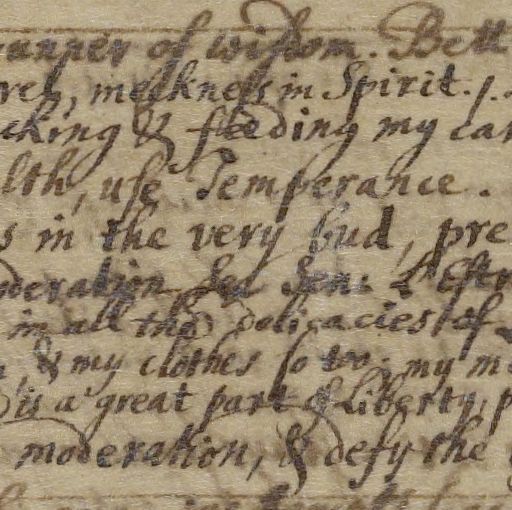 manner of wisdom. Bett
meekness in Spirit.
king & feeding my
lth, use Temperance.
s in the very bud, pre
deration Sen:
in all the delicacies of
& my clothes so to; my m
is a great part of Liberty, p
moderation, & defy the